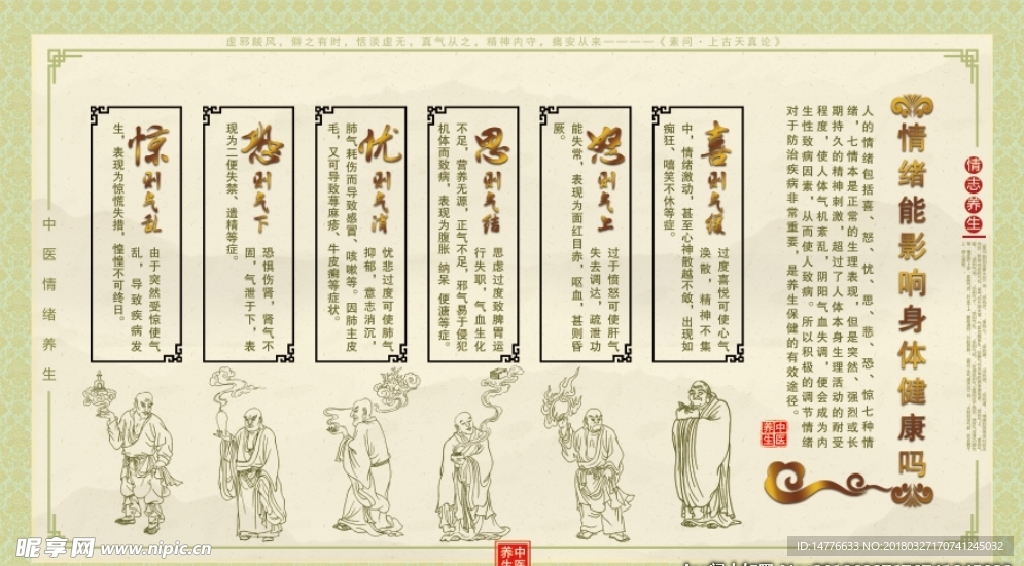 虚邪贼风，僻之有时，恬淡虚无，真气从之，精神内守，病安从来————《素问·上古天真论》
情志养生
情绪能影响身体健康吗
人的情绪包括喜、怒、忧、思、悲、恐、惊七种情
绪，七情本是正常的生理表现，但是突然、强烈或长
期持久的精神刺激，超过了人体本身生理活动的耐受
程度，使人体气机紊乱，阴阳气血失调，便会成为内
生性致病因素，从而使人致病。所以积极的调节情绪
对于防治疾病非常重要，是养生保健的有效途径。
中医
养生
喜则气缓
过度喜悦可使心气
涣散，精神不集
中，情绪激动，甚至心神散越不敛，出现如
痴狂、嘻笑不休等症。
怒则气上
过于愤怒可使肝气
失去调达，疏泄功
能失常，表现为面红目赤，呕血，甚则昏
厥。
思则气结
思虑过度致脾胃运
行失职，气血生化
不足，营养无源，正气不足，邪气易于侵犯
机体而致病，表现为腹胀 纳呆 便溏等症。
忧则气消
忧悲过度可使肺气
抑郁，意志消沉，
肺气耗伤而导致感冒、咳嗽等。因肺主皮
毛，又可导致荨麻疹、牛皮癣等症状。
恐则气下
恐惧伤肾，肾气不
固，气泄于下，表
现为二便失禁、遗精等症。
惊则气乱
由于突然受惊使气
乱，导致疾病发
生。表现为惊慌失措，惶惶不可终日。
中医情绪养生
中医
养生
昵享网 www.nipic.cn
ID:14776633 NO:20180327170741245032